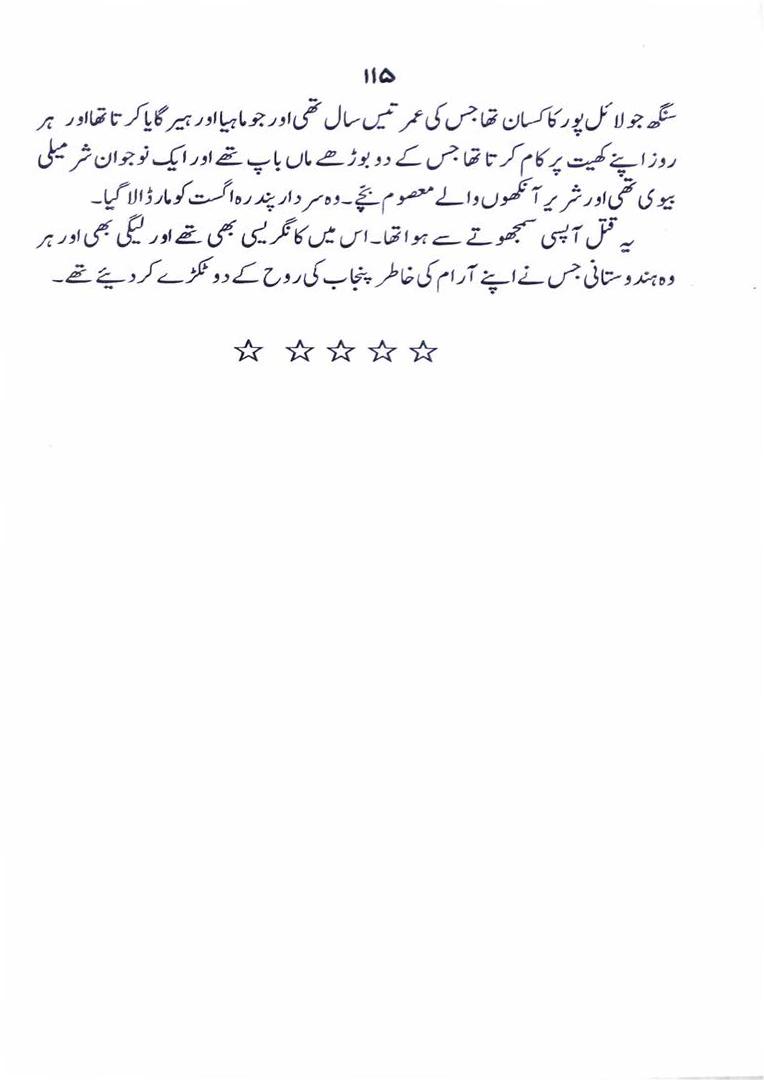 ۱۱۵
سنگھ جو لائل پور کا کسان تھا جس کی عمر تیس سال تھی اور جو ماہیا اور ہیر گایا کرتا تھا اور ہر
روز اپنے کھیت پر کام کرتا تھا جس کے دو بوڑھے ماں باپ تھے اور ایک نوجوان شرمیلی
بیوی تھی اور شریر آنکھوں والے معصوم بچے۔ وہ سردار پندرہ اگست کو مار ڈالا گیا۔
یہ قتل آپسی سمجھوتے سے ہوا تھا۔ اس میں کانگریسی بھی تھے اور لیگی بھی اور ہر
وہ ہندوستانی جس نے اپنے آرام کی خاطر پنجاب کی روح کے دو ٹکڑے کر دیئے تھے۔
☆ ☆ ☆ ☆ ☆